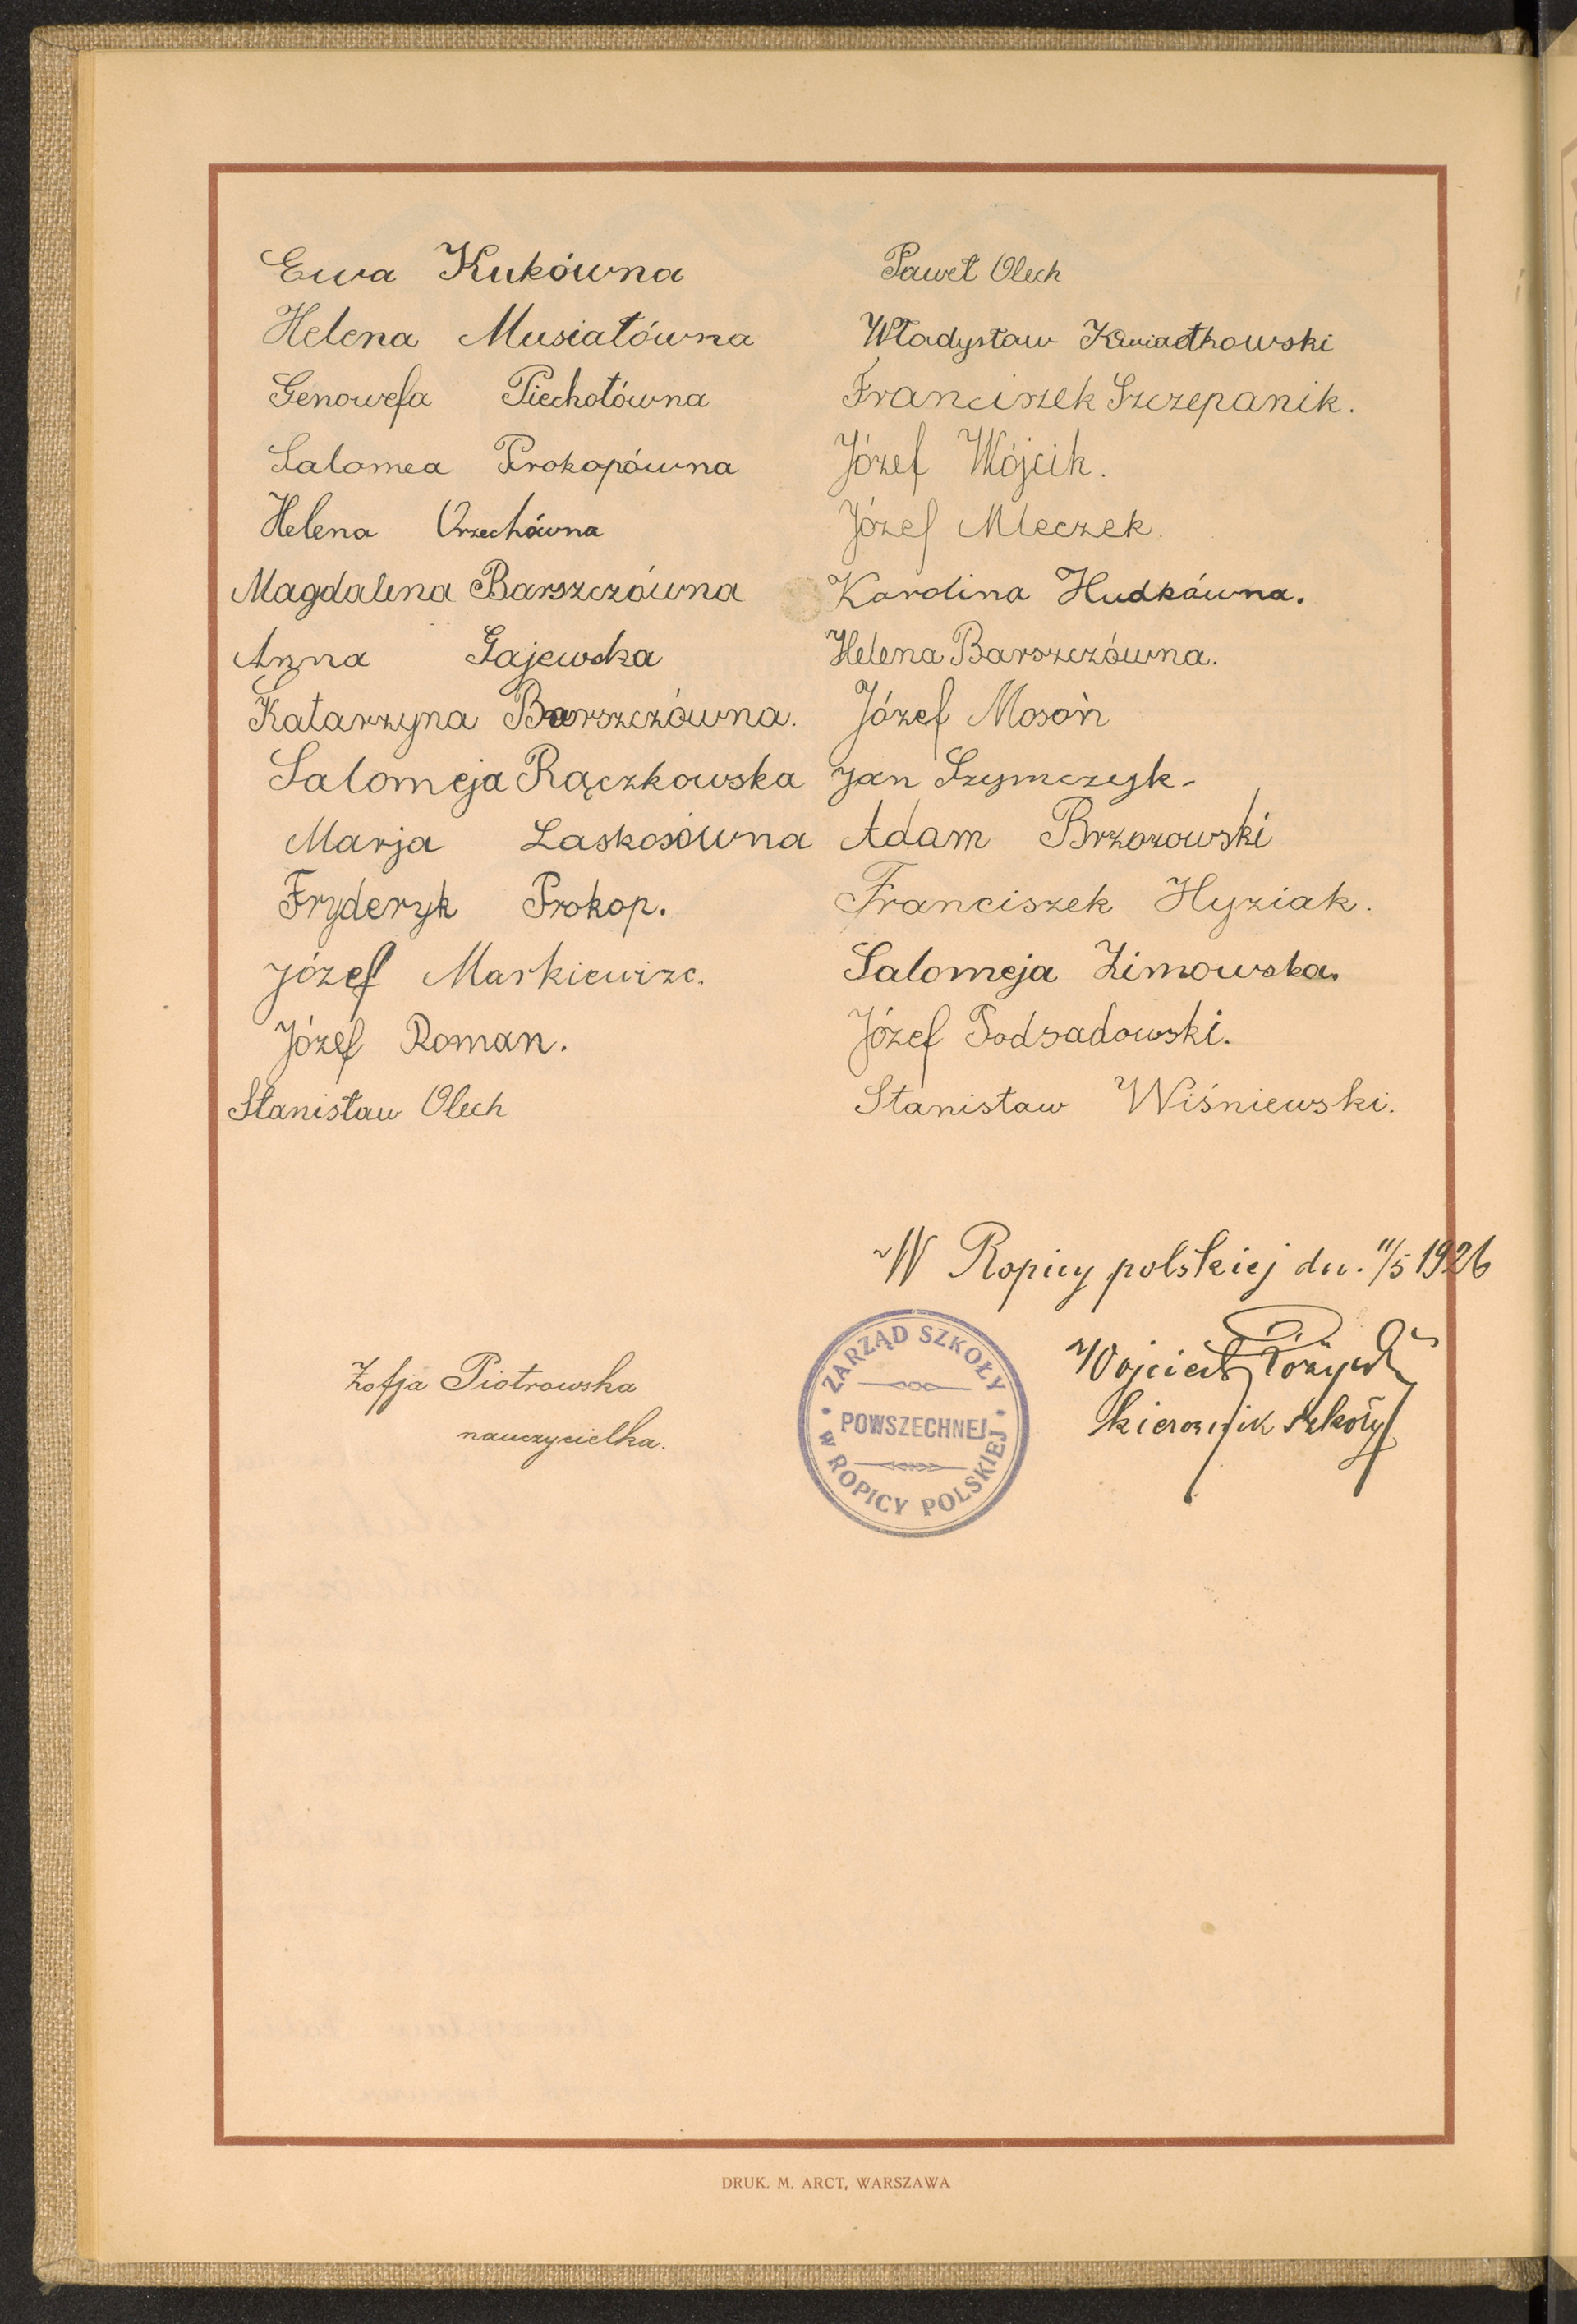 Ewa Kukówna
Helena Musiałówna
Genowefa Piechotówna
Salomea Prokopówna
Helena Orzechówna
Magdalena Barszczówna
Anna Gajewska
Katarzyna Barszczówna.
Salomeja Rączkowska
Marja Laskosówna
Fryderyk Prokop.
Józef Markiewizc.
Józef Roman.
Stanisław Olech
Paweł Olech
Władysław Kwiatkowski
Franciszek Szczepanik.
Józef Wójcik.
Józef Mleczek.
Karolina Hudkówna.
Helena Barszczówna.
Józef Mosoń
Jan Szymczyk-
Adam Brzozowski
Franciszek Hyziak.
Salomeja Zimowska.
Józef Podsadowski.
Stanisław Wiśniewski.
W Ropicy polskiej dn. 11/5 1926
Zofja Piotrowska
nauczycielka.
ZARZĄD SZKOŁY
POWSZECHNEJ
W ROPICY POLSKIEJ
Wojciech
kierownik szkoły
DRUK. M. ARCT, WARSZAWA